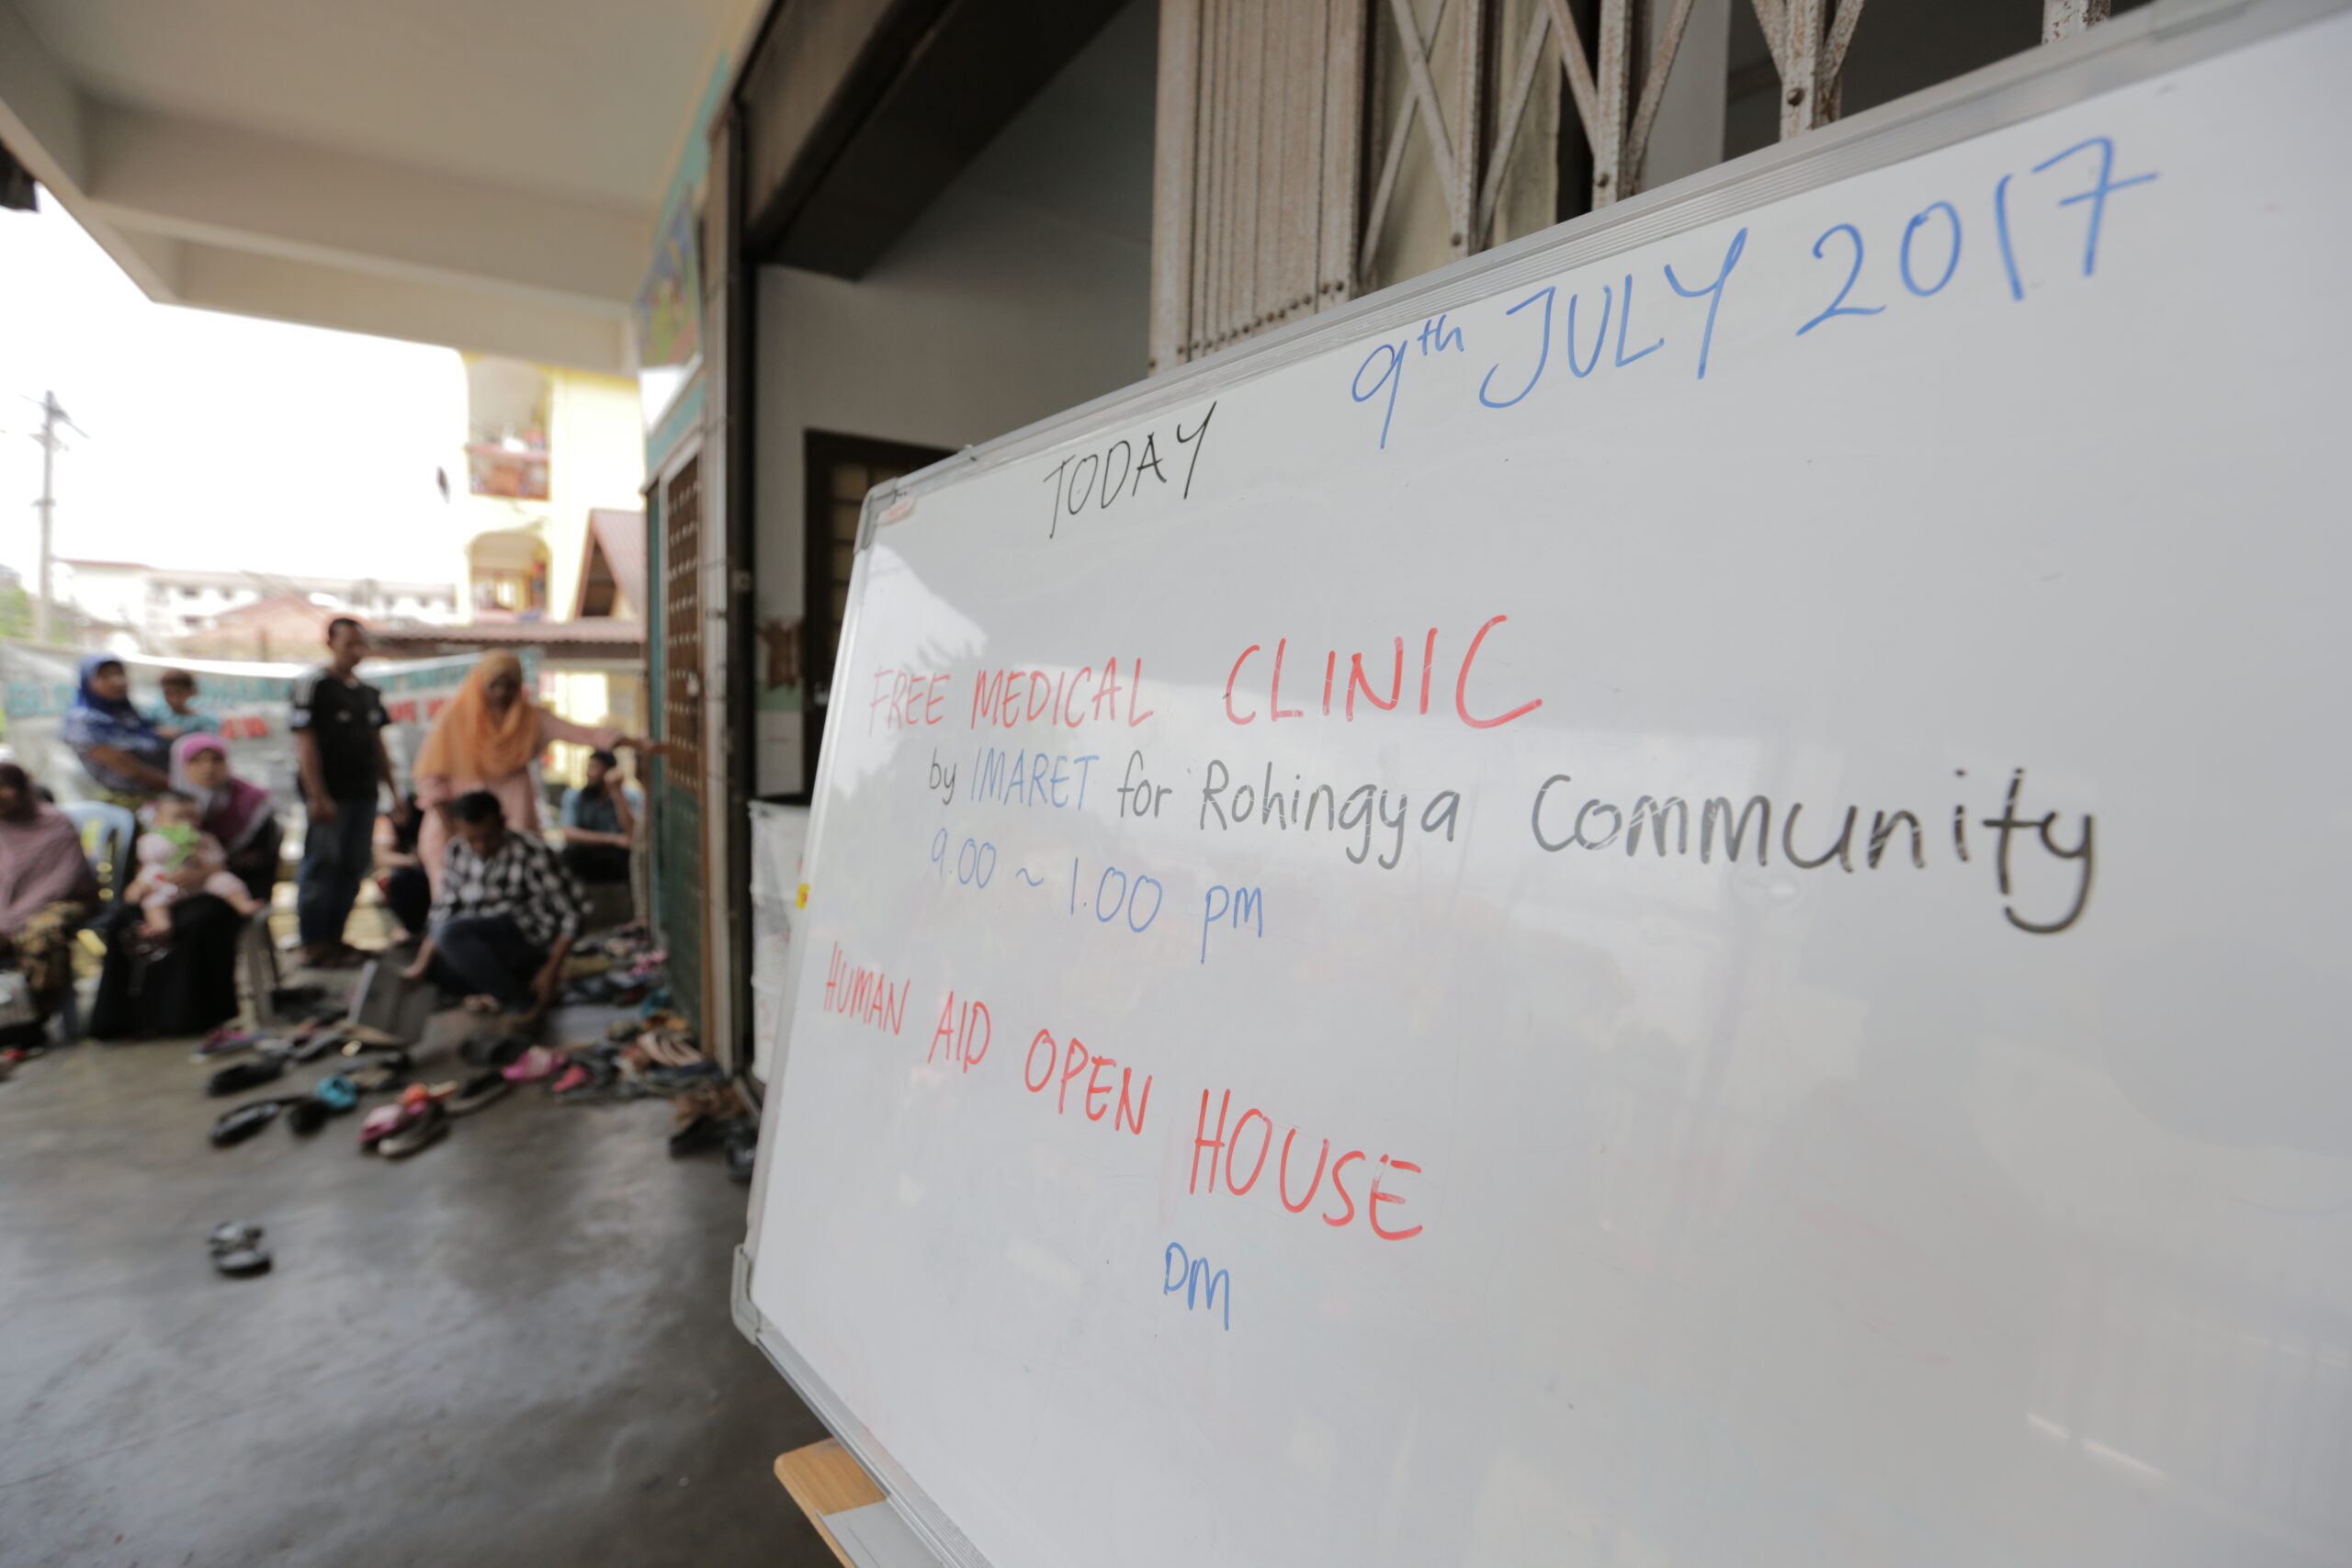 TODAY 9th JULY 2017
FREE MEDICAL CLINIC
by IMARET for Rohingya Community
9.00 ~ 1.00 pm
HUMAN AID OPEN HOUSE
pm